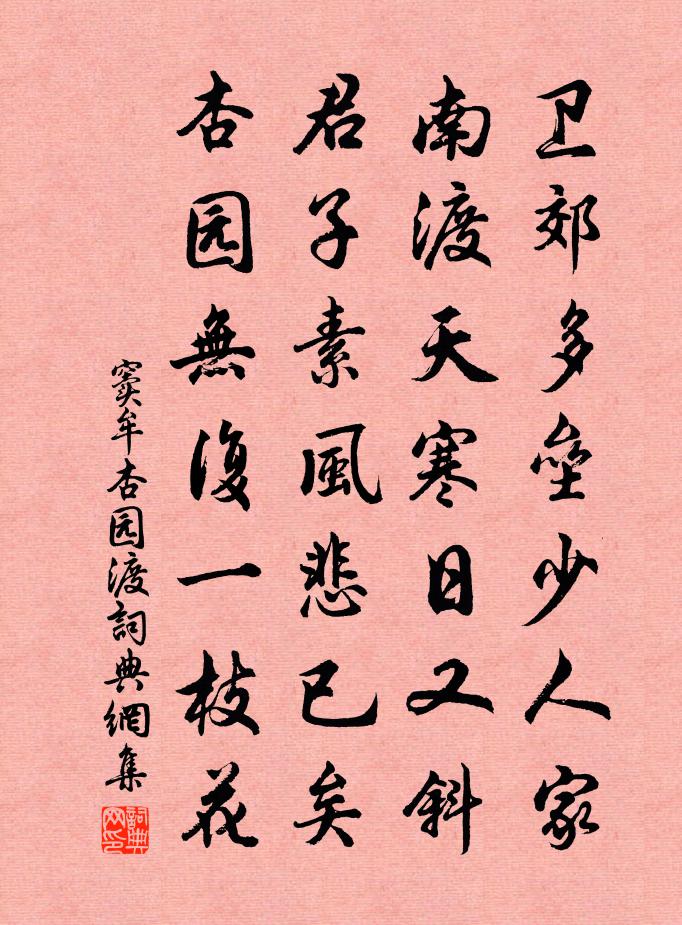 卫郊多垒少人家
南渡天寒日又斜
君子素風悲已矣
杏园無復一枝花
窦牟杏园渡詞典網集
詞典网印